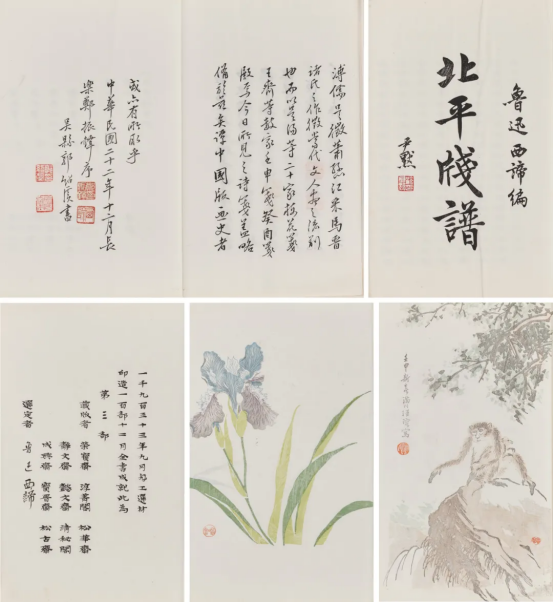 魯迅西諦編
北平牋譜
尹默
溥儒
蕭愻江采馬晉
諸氏之作
當代文人
之流別
也而以吳
等二十家梅花箋
王齊等數家壬申箋癸酉箋
殿焉今日所見之詩箋盡略
備於茲矣譚中國版畫史者
或亦有所取乎
中華民國二十二年十一月長
樂鄭振鐸序
吳縣郭紹虞書
一千九百三十三年九月勾工選材
印造一百部十二月全書成就此為
第三部
榮寶齋 淳菁閣 松華齋
靜文齋 懿文齋 清秘閣
成興齋 寶晉齋 松古齋
選定者 魯迅 西諦
壬申